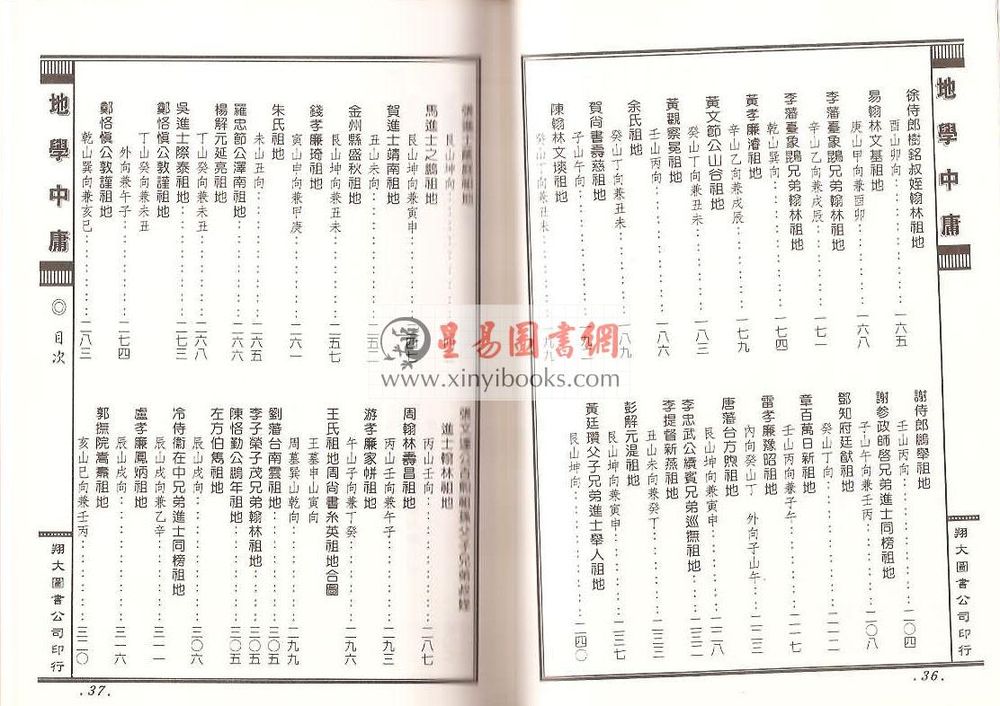 地學中庸
徐侍郎樹銘叔姪翰林祖地
酉山卯向………一六五
易翰林文基祖地
庚山甲向兼酉卯………一六八
李藩臺象鵾兄弟翰林祖地
辛山乙向兼戌辰………一七一
李藩臺象鵾兄弟翰林祖地
乾山巽向………一七四
黃孝廉濬祖地
辛山乙向兼戌辰………一七九
黃文節公山谷祖地
癸山丁向兼丑未………一八三
黃觀察冕祖地
壬山丙向………一八六
余氏祖地
癸山丁向兼丑未………一八九
賀尚書壽慈祖地
子山午向
陳翰林文琰祖地
癸山丁向兼丑未
謝侍郎鵬舉祖地
壬山丙向………二〇四
謝參政師啓兄弟進士同榜祖地
子山午向兼壬丙………二〇八
鄧知府廷猷祖地
癸山丁向………二一二
章百萬日新祖地
壬山丙向兼子午………二一七
雷孝廉豫昭祖地
內向癸山丁 外向子山午………二二三
唐藩台方煦祖地
艮山坤向兼寅申………二二七
李忠武公續賓兄弟巡撫祖地
艮山坤向兼寅申………二三二
李提督新燕祖地
丑山未向兼癸丁………二三五
彭解元湜祖地
艮山坤向兼寅申………二三七
黃廷瓚父子兄弟進士舉人祖地
艮山坤向………二四〇
翔大圖書公司印行
.36.
艮山坤向
馬進士之鵬祖地
艮山坤向兼寅申
賀進士靖南祖地
丑山未向………二五二
金州縣盛秋祖地
艮山坤向兼丑未………二五七
錢孝廉琦祖地
寅山申向兼甲庚………二六一
朱氏祖地
未山丑向………二六五
羅忠節公澤南祖地………二六六
楊解元延亮祖地
丁山癸向兼未丑………二六八
吳進士際泰祖地………二七三
鄭恪慎公敦謹祖地
丁山癸向兼未丑
外向兼午子………二七四
鄭恪慎公敦謹祖地
乾山巽向兼亥巳………二八三
進士翰林祖地
丙山壬向………二八七
周翰林壽昌祖地
丙山壬向兼午子………二九三
游孝廉家帡祖地
午山子向兼丁癸………二九六
王氏祖地周尚書糸英祖地合圖
王墓申山寅向
周墓巽山乾向………二九九
劉藩台南雲祖地………三〇五
李子榮子茂兄弟翰林祖地………三〇五
陳恪勤公鵬年祖地………三〇五
左方伯雋祖地
辰山戌向………三〇六
冷侍衞在中兄弟進士同榜祖地
辰山戌向兼乙辛………三一一
盧孝廉鳳炳祖地
辰山戌向………三一六
郭撫院嵩燾祖地
亥山巳向兼壬丙………三二〇
地學中庸
◎目次
翔大圖書公司印行
.37.
星易圖書網
www.xinyibooks.com